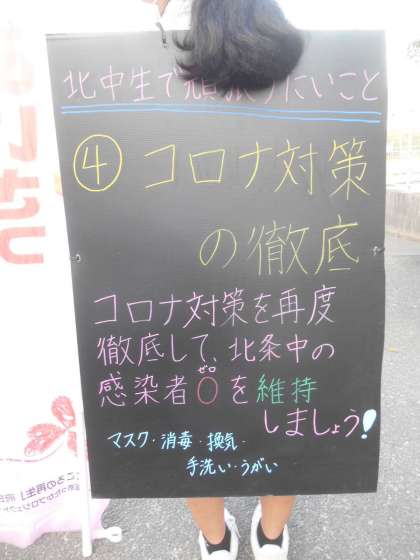 北中生で頑張りたいこと
④コロナ対策
の徹底
コロナ対策を再度
徹底して、北条中の
ゼロ
感染者0を維持
しましょう!
マスク・消毒・換気・
手洗い・うがい